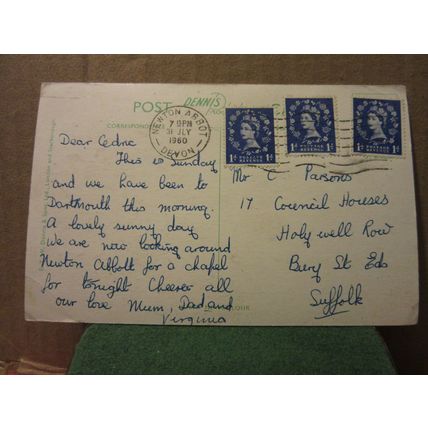 POST
DENNIS
CORRESPONDENCE
NEWTON ABBOT
7 PM
31 JLY
1960
DEVON
1D POSTAGE REVENUE 1D
1D POSTAGE REVENUE 1D
1D POSTAGE REVENUE 1D
Dear Cedric
This is Sunday
and we have been to
Dartmouth this morning.
A lovely sunny day
We are now looking around
Newton Abbott for a chapel
for tonight Cheerio all
our love Mum, Dad and
Virginia
Mr C Parsons
17 Council Houses
Holywell Row
Bury St Eds
Suffolk